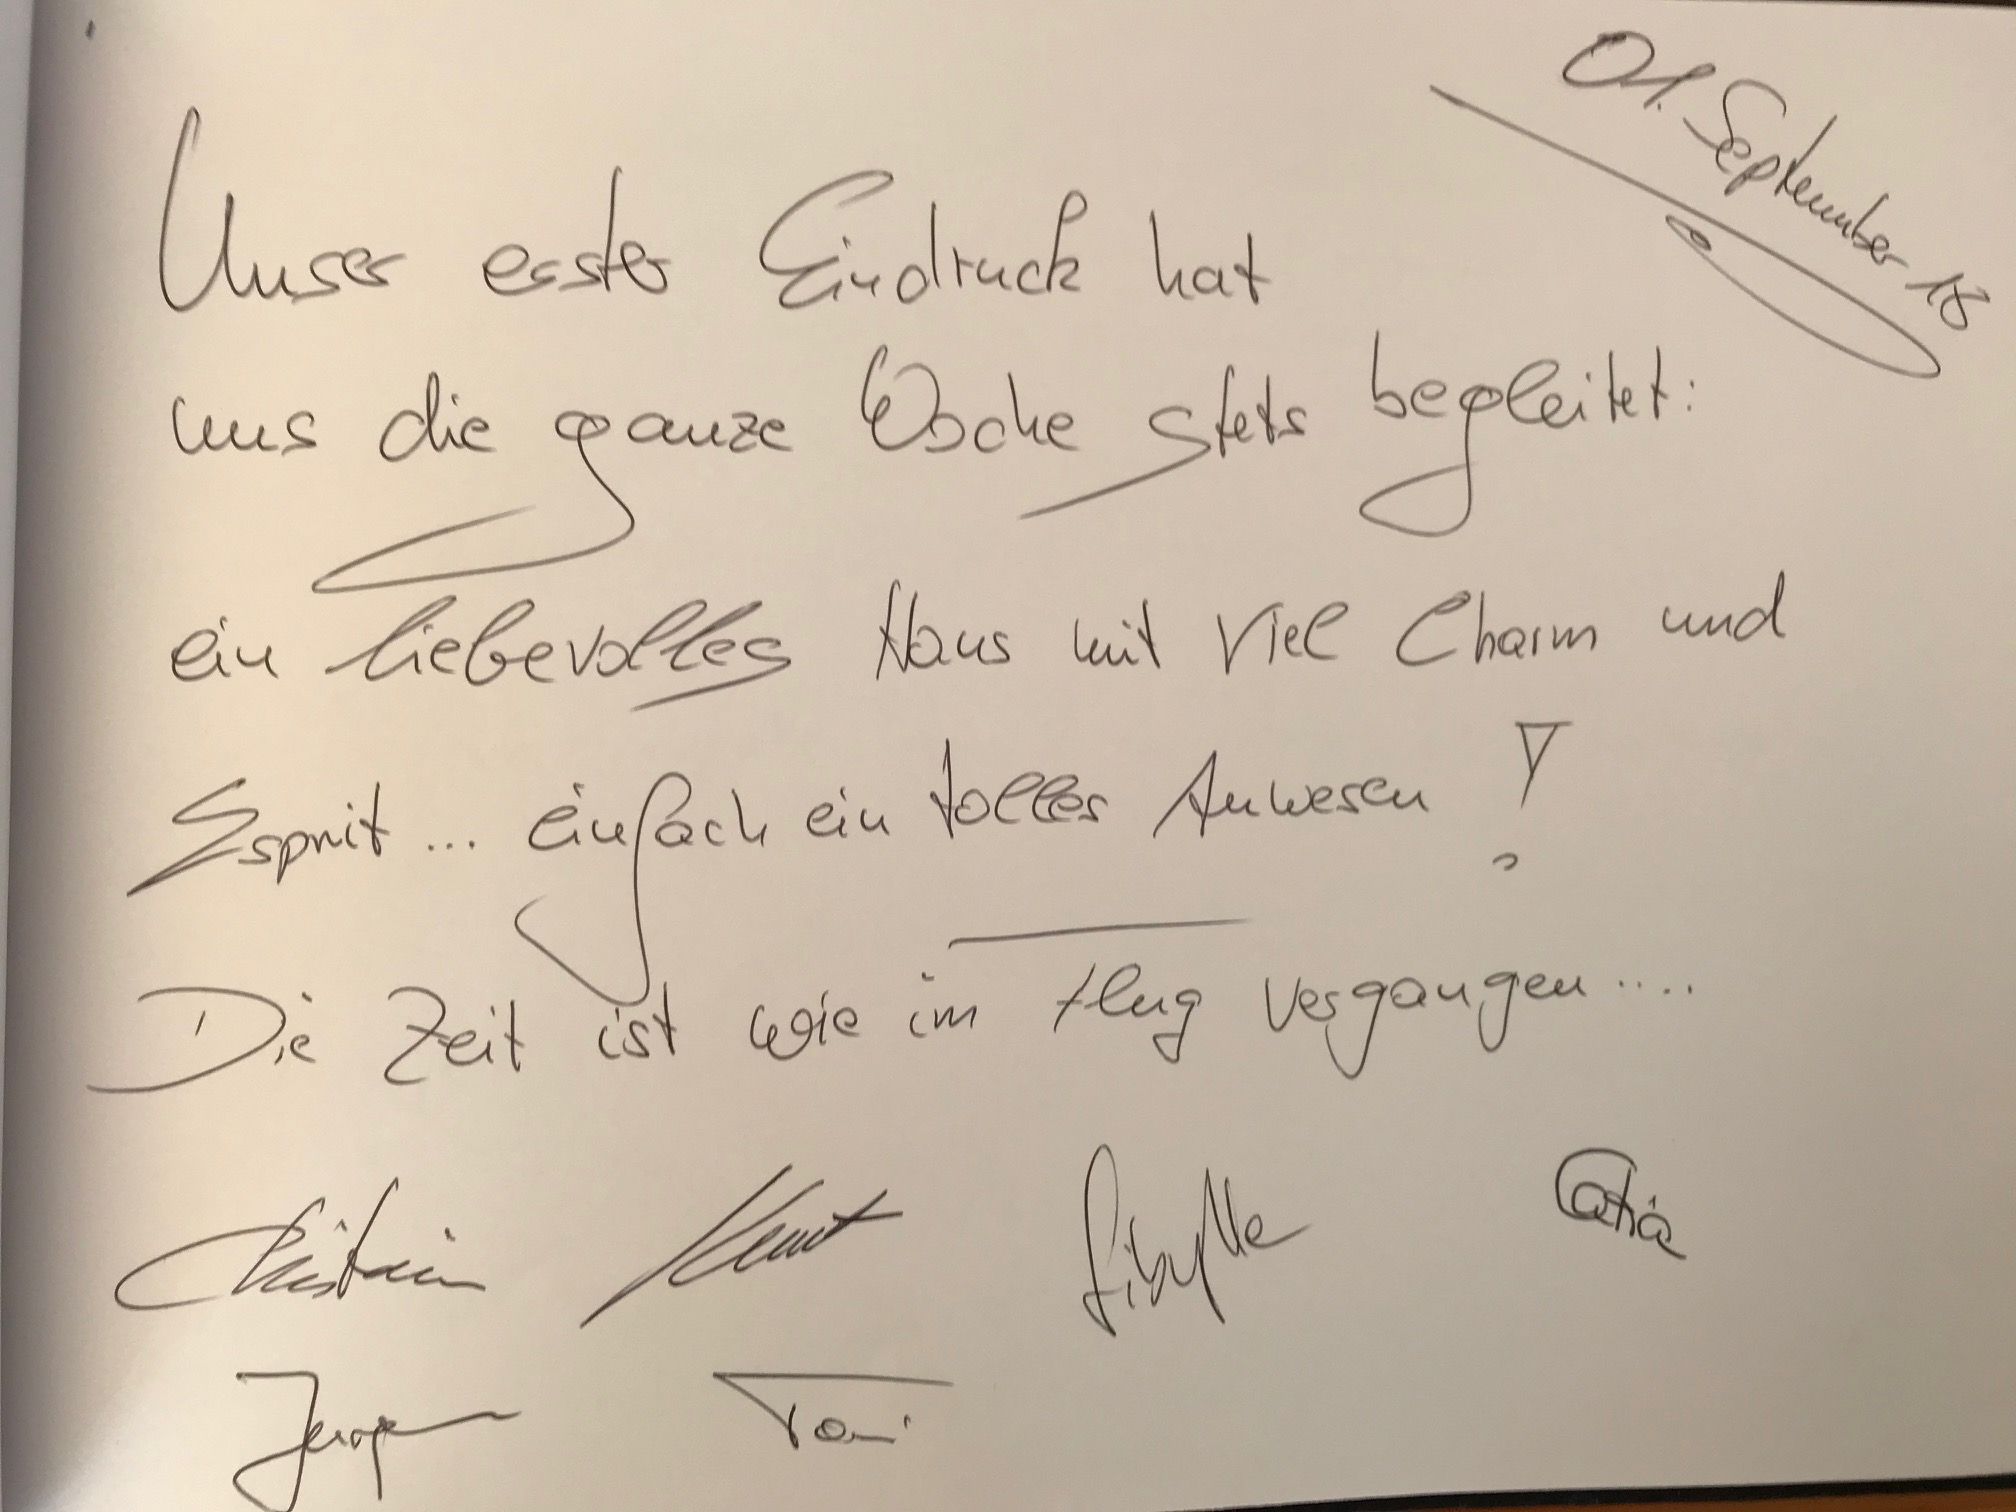 01. September 18
Unser erster Eindruck hat
uns die ganze Woche stets begleitet:
ein liebevolles Haus mit viel Charm und
Esprit... einfach ein tolles Anwesen!
Die Zeit ist wie im Flug vergangen....
Sibylle Catia
Jürgen Toni